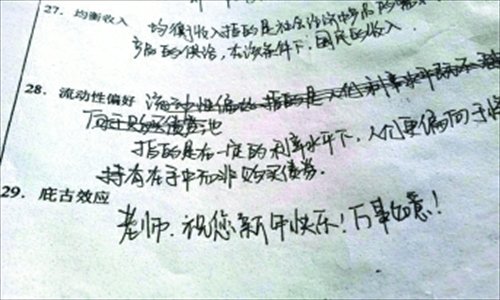 27. 均衡收入 均衡收入指的是社会经济中产品的需
产品的供给,在该条件下,国民的收入
28. 流动性偏好 流动性偏好指的是人们利率水平
而于购买债券
指的是在一定的利率水平下,人们更偏向于
持有在手中而非购买债券.
29. 庇古效应
老师.祝您新年快乐!万事如意!